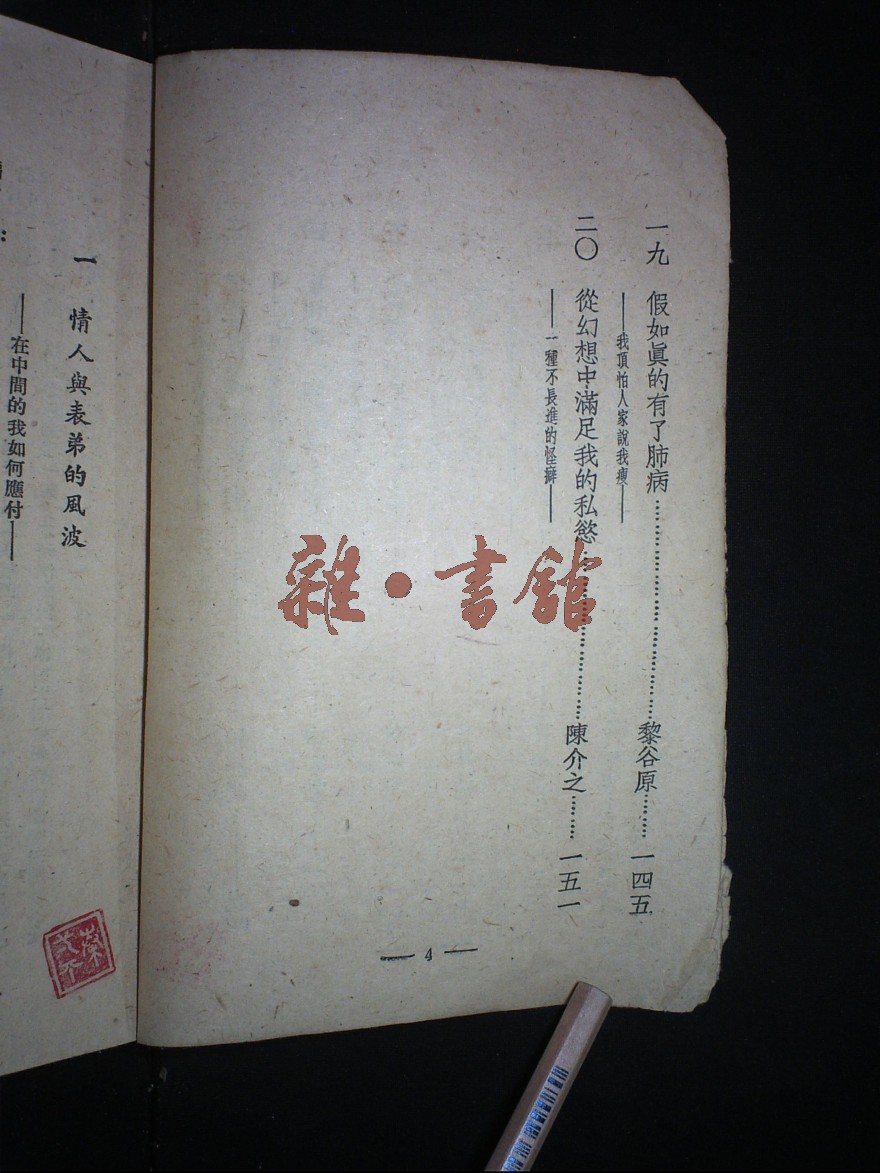 一九　假如眞的有了肺病……………………黎谷原………一四五
——我頂怕人家說我瘦——
二〇　從幻想中滿足我的私慾……………………陳介之………一五一
——一種不長進的怪癖——
— 4 —
一　情人與表弟的風波
——在中間的我如何應付——
雜·書館